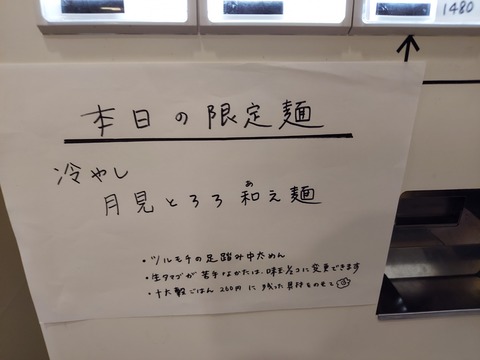 1480
本日の限定麺
冷やし
月見とろろ和え麺
あ
・ツルモチの足踏み中太めん
・生タマゴが苦手なかたは、味玉½コに変更できます
・十六穀ごはん 260円 に 残った具材をのせて